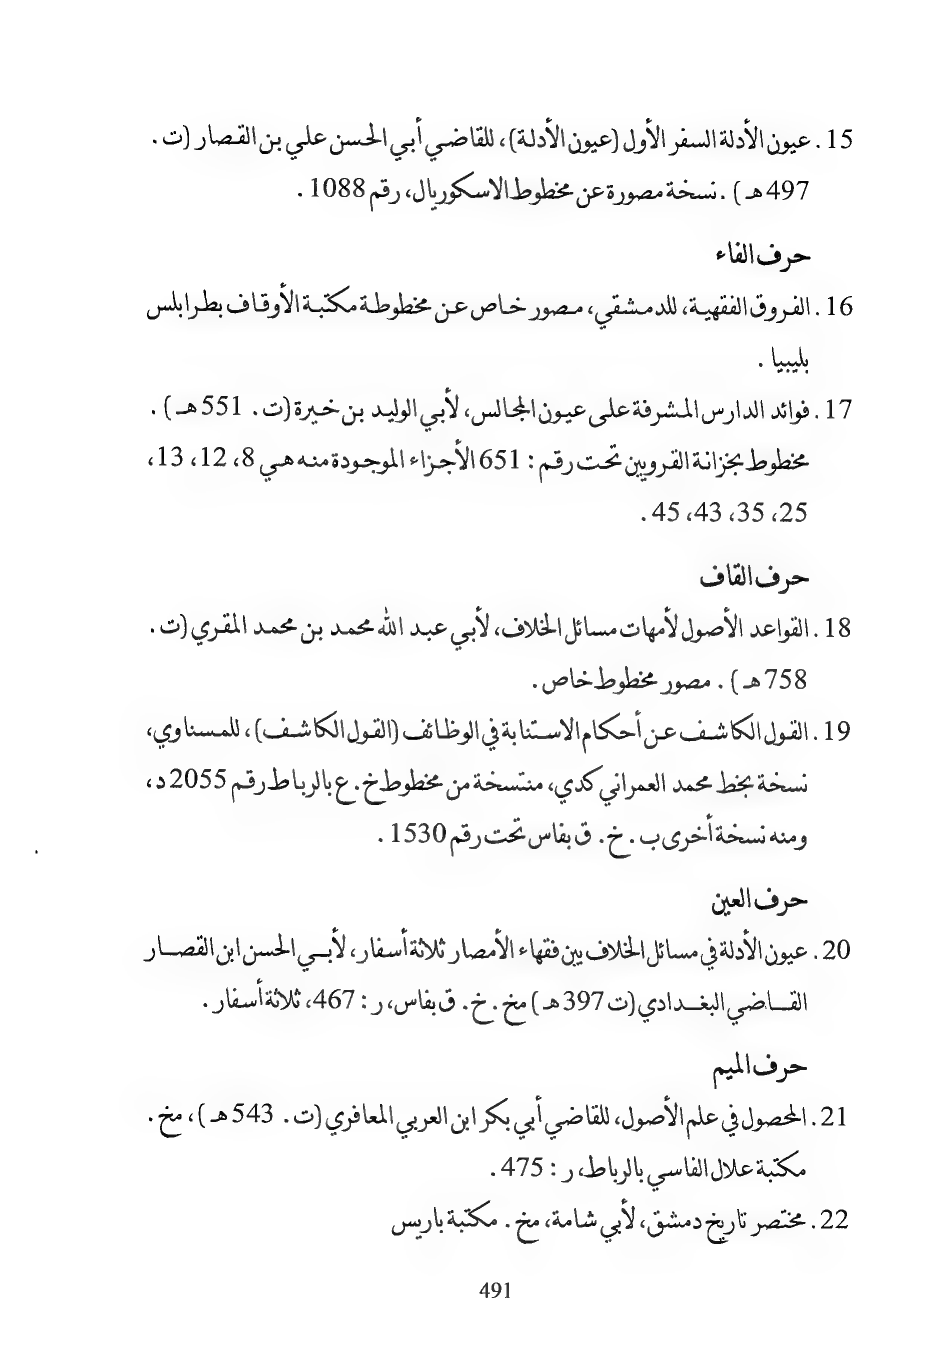 15. عيون الأدلة السفر الأول (عيون الأدلة)، للقاضي أبي الحسن علي بن القصار (ت.
497هـ). نسخة مصورة عن مخطوط الاسكوريال، رقم 1088.
حرف الفاء
16. الفروق الفقهية، للدمشقي، مصور خاص عن مخطوطة مكتبة الأوقاف بطرابلس
بليبيا.
17. فوائد الدارس المشرفة على عيون المجالس، لأبي الوليد بن خيرة (ت. 551هـ).
مخطوط بخزانة القرويين تحت رقم: 651 الأجزاء الموجودة منه هي 8، 12، 13،
25، 35، 43، 45.
حرف القاف
18. القواعد الأصول لأمهات مسائل الخلاف، لأبي عبد الله محمد بن محمد المقري (ت.
758هـ). مصور مخطوط خاص.
19. القول الكاشف عن أحكام الاستنابة في الوظائف (القول الكاشف)، للمسناوي،
نسخة بخط محمد العمراني كدي، منتسخة من مخطوط خ. ع بالرباط رقم 2055 د،
ومنه نسخة أخرى ب. خ. ق بفاس تحت رقم 1530.
حرف العين
20. عيون الأدلة في مسائل الخلاف بين فقهاء الأمصار ثلاثة أسفار، لأبي الحسن ابن القصار
القاضي البغدادي (ت 397هـ) مخ. خ. ق بفاس، ر: 467، ثلاثة أسفار.
حرف الميم
21. المحصول في علم الأصول، للقاضي أبي بكر ابن العربي المعافري (ت. 543هـ)، مخ.
مكتبة علال الفاسي بالرباط، ر: 475.
22. مختصر تاريخ دمشق، لأبي شامة، مخ. مكتبة باريس
491